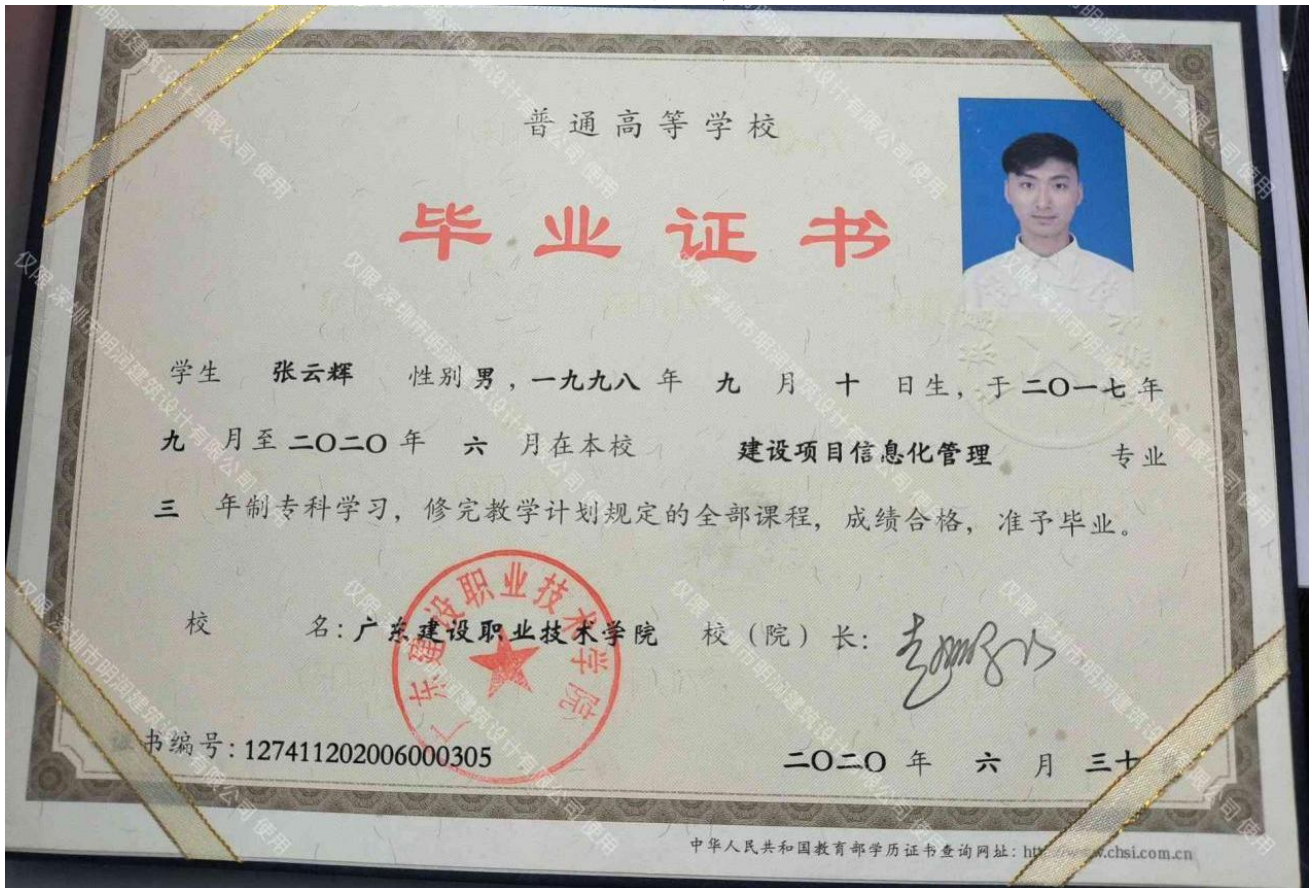 普通高等学校
毕业证书
学生 张云辉 性别 男，一九九八 年 九 月 十 日生，于 二〇一七 年
九 月至 二〇二〇 年 六 月在本校 建设项目信息化管理 专业
三 年制专科学习，修完教学计划规定的全部课程，成绩合格，准予毕业。
校 名：广东建设职业技术学院 校（院）长：
广东建设职业技术学院
书编号：127411202006000305
二〇二〇 年 六 月 三十
中华人民共和国教育部学历证书查询网址：htt w.chsi.com.cn
仅限 深圳市明润建筑设计有限公司 使用